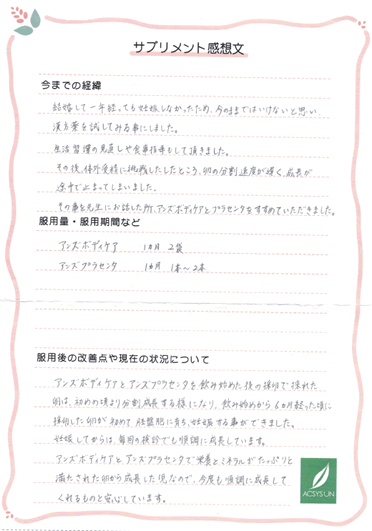 サプリメント感想文
今までの経緯
結婚して一年経っても妊娠しなかったため、今のままではいけないと思い、
漢方薬を試してみる事にしました。
生活習慣の見直しや食事指導もして頂きました。
その後、体外受精に挑戦したところ、卵の分割速度が遅く、成長が
途中で止まってしまいました。
その事を先生にお話した所、アンズボディケアとプラセンタをすすめていただきました。
服用量・服用期間など
アンズボディケア 1カ月 2袋
アンズプラセンタ 1カ月 1本〜2本
服用後の改善点や現在の状況について
アンズボディケアとアンズプラセンタを飲み始めた後の採卵で採れた
卵は、初めの頃より分割成長する様になり、飲み始めから6カ月経った頃に
採卵した卵が初めて胚盤胞に育ち、妊娠する事ができました。
妊娠してからは、毎回の検診でも順調に成長しています。
アンズボディケアとアンズプラセンタで栄養とミネラルがたっぷりと
満たされた卵から成長した児なので、今後も順調に成長して
くれるものと安心しています。
ACSYS UN